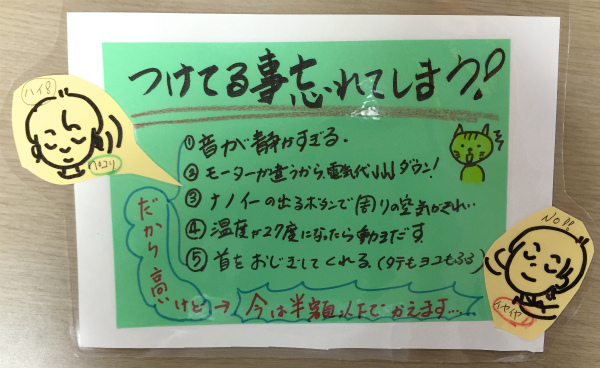 つけてる事忘れてしまう!
ハイ!
ペコリ
① 音が静かすぎる.
② モーターが違うから、電気代↓↓↓ダウン!
③ ナノイーの出るボタンで周りの空気がきれい…
④ 温度が27度になったら動きだす.
⑤ 首をおじぎしてくれる.(タテもヨコもふる)
だから高い
けど→
今は半額以下でかえます….
NO!!
イヤイヤ